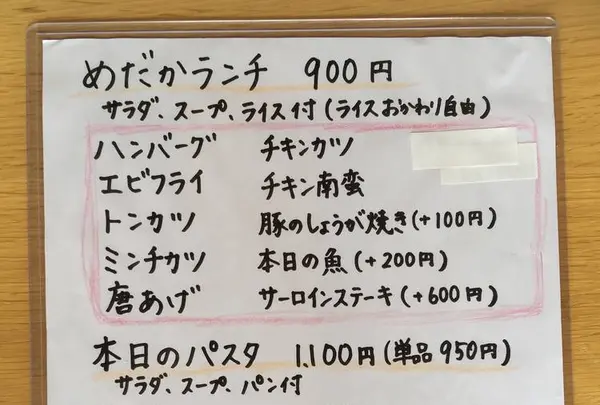 めだかランチ 900円
サラダ、スープ、ライス付(ライスおかわり自由)
ハンバーグ チキンカツ
エビフライ チキン南蛮
トンカツ 豚のしょうが焼き(+100円)
ミンチカツ 本日の魚(+200円)
唐あげ サーロインステーキ(+600円)
本日のパスタ 1,100円(単品950円)
サラダ、スープ、パン付